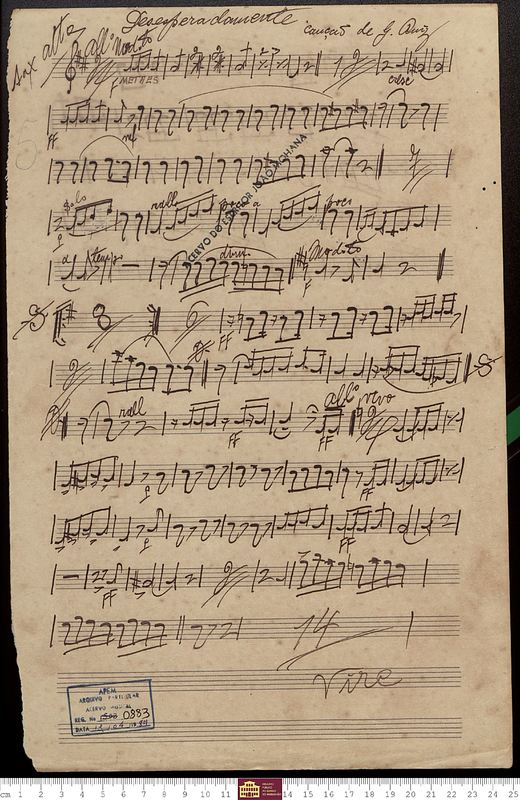 Desesperadamente
canção de G.
Sax alto
All° Modto
METAES
FF
mf
ACERVO DO EDITOR JOÃO MOHANA
Solo
rallo poco a poco
a tempo
dim
Modto
F
8
6
FF
rall
FF
FF
all° vivo
FF
FF
FF
14
Vire
APEM
ARQUIVO PARTICULAR
ACERVO MUSICAL
REG. No 0883
DATA
cm 1 2 3 4 5 6 7 8 9 10 11 12 13 14 15 16 17 18 19 20 21 22 23 24 25